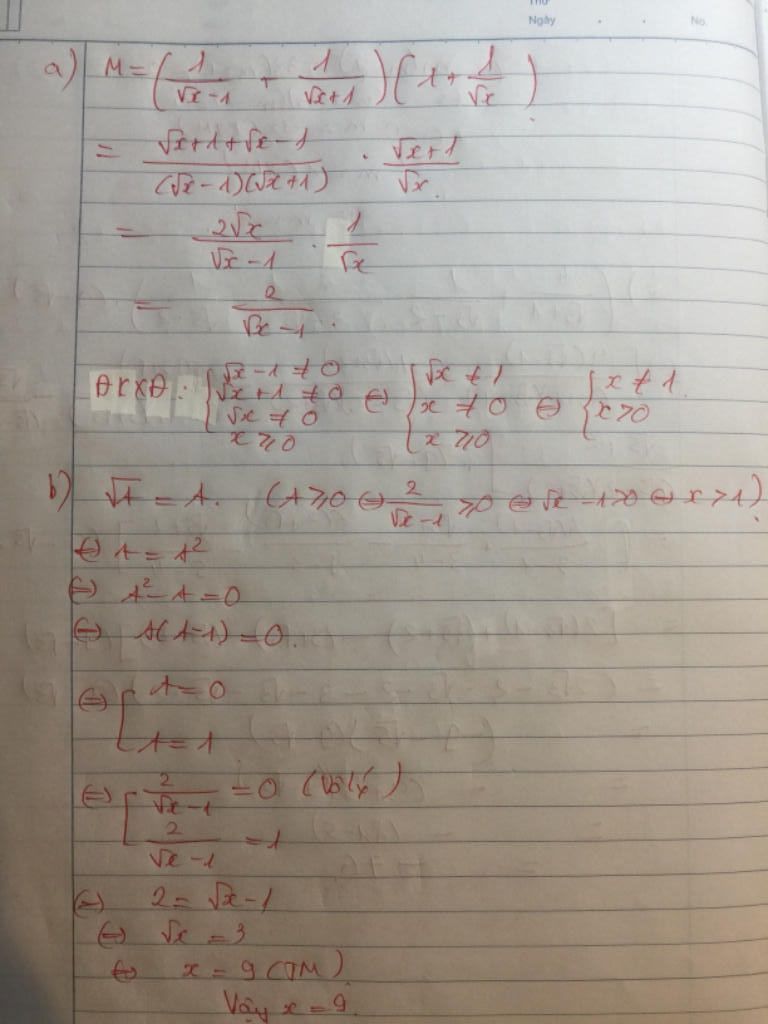 Thứ
Ngày . . No.
a) M = (1/(√x-1) + 1/(√x+1))(1 + 1/√x)
= (√x+1+√x-1)/((√x-1)(√x+1)) . (√x+1)/√x
= 2√x/(√x-1) . 1/√x
= 2/(√x-1).
ĐKXĐ: { √x-1 ≠ 0; √x+1 ≠ 0; √x ≠ 0; x ≥ 0 ⇔ { √x ≠ 1; x ≠ 0; x ≥ 0 ⇔ { x ≠ 1; x > 0
b) √A = A. (A ≥ 0 ⇔ 2/(√x-1) ≥ 0 ⇔ √x-1 > 0 ⇔ x > 1)
⇔ A = A²
⇔ A² - A = 0
⇔ A(A-1) = 0.
⇔ [ A = 0
A = 1
⇔ [ 2/(√x-1) = 0 (vô lý)
2/(√x-1) = 1
⇔ 2 = √x-1
⇔ √x = 3
⇔ x = 9 (TM)
Vậy x = 9.